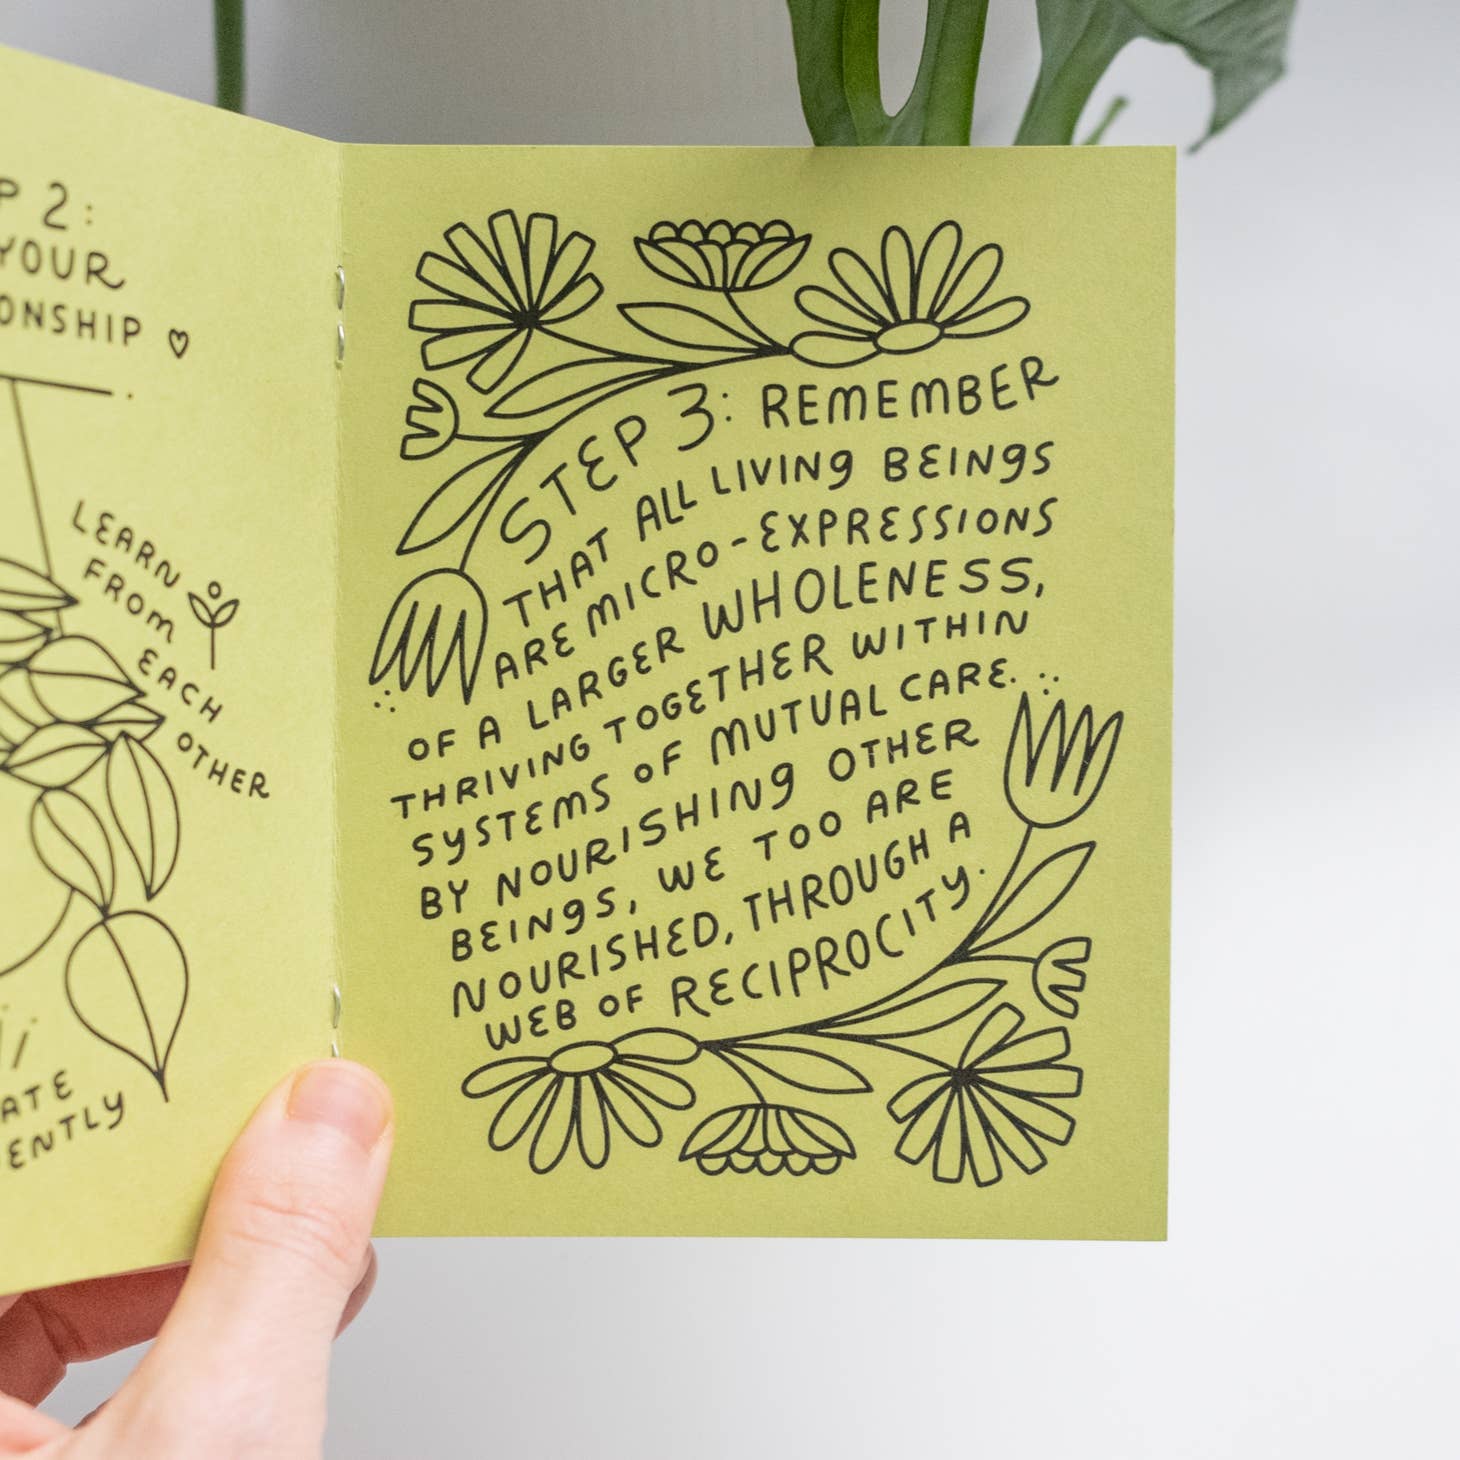 2:
YOUR
LEARN
FROM
EACH
OTHER
STEP 3: REMEMBER
THAT ALL LIVING BEINGS
ARE MICRO-EXPRESSIONS
OF A LARGER WHOLENESS,
THRIVING TOGETHER WITHIN
SYSTEMS OF MUTUAL CARE.
BY NOURISHING OTHER
BEINGS, WE TOO ARE
NOURISHED, THROUGH A
WEB OF RECIPROCITY.